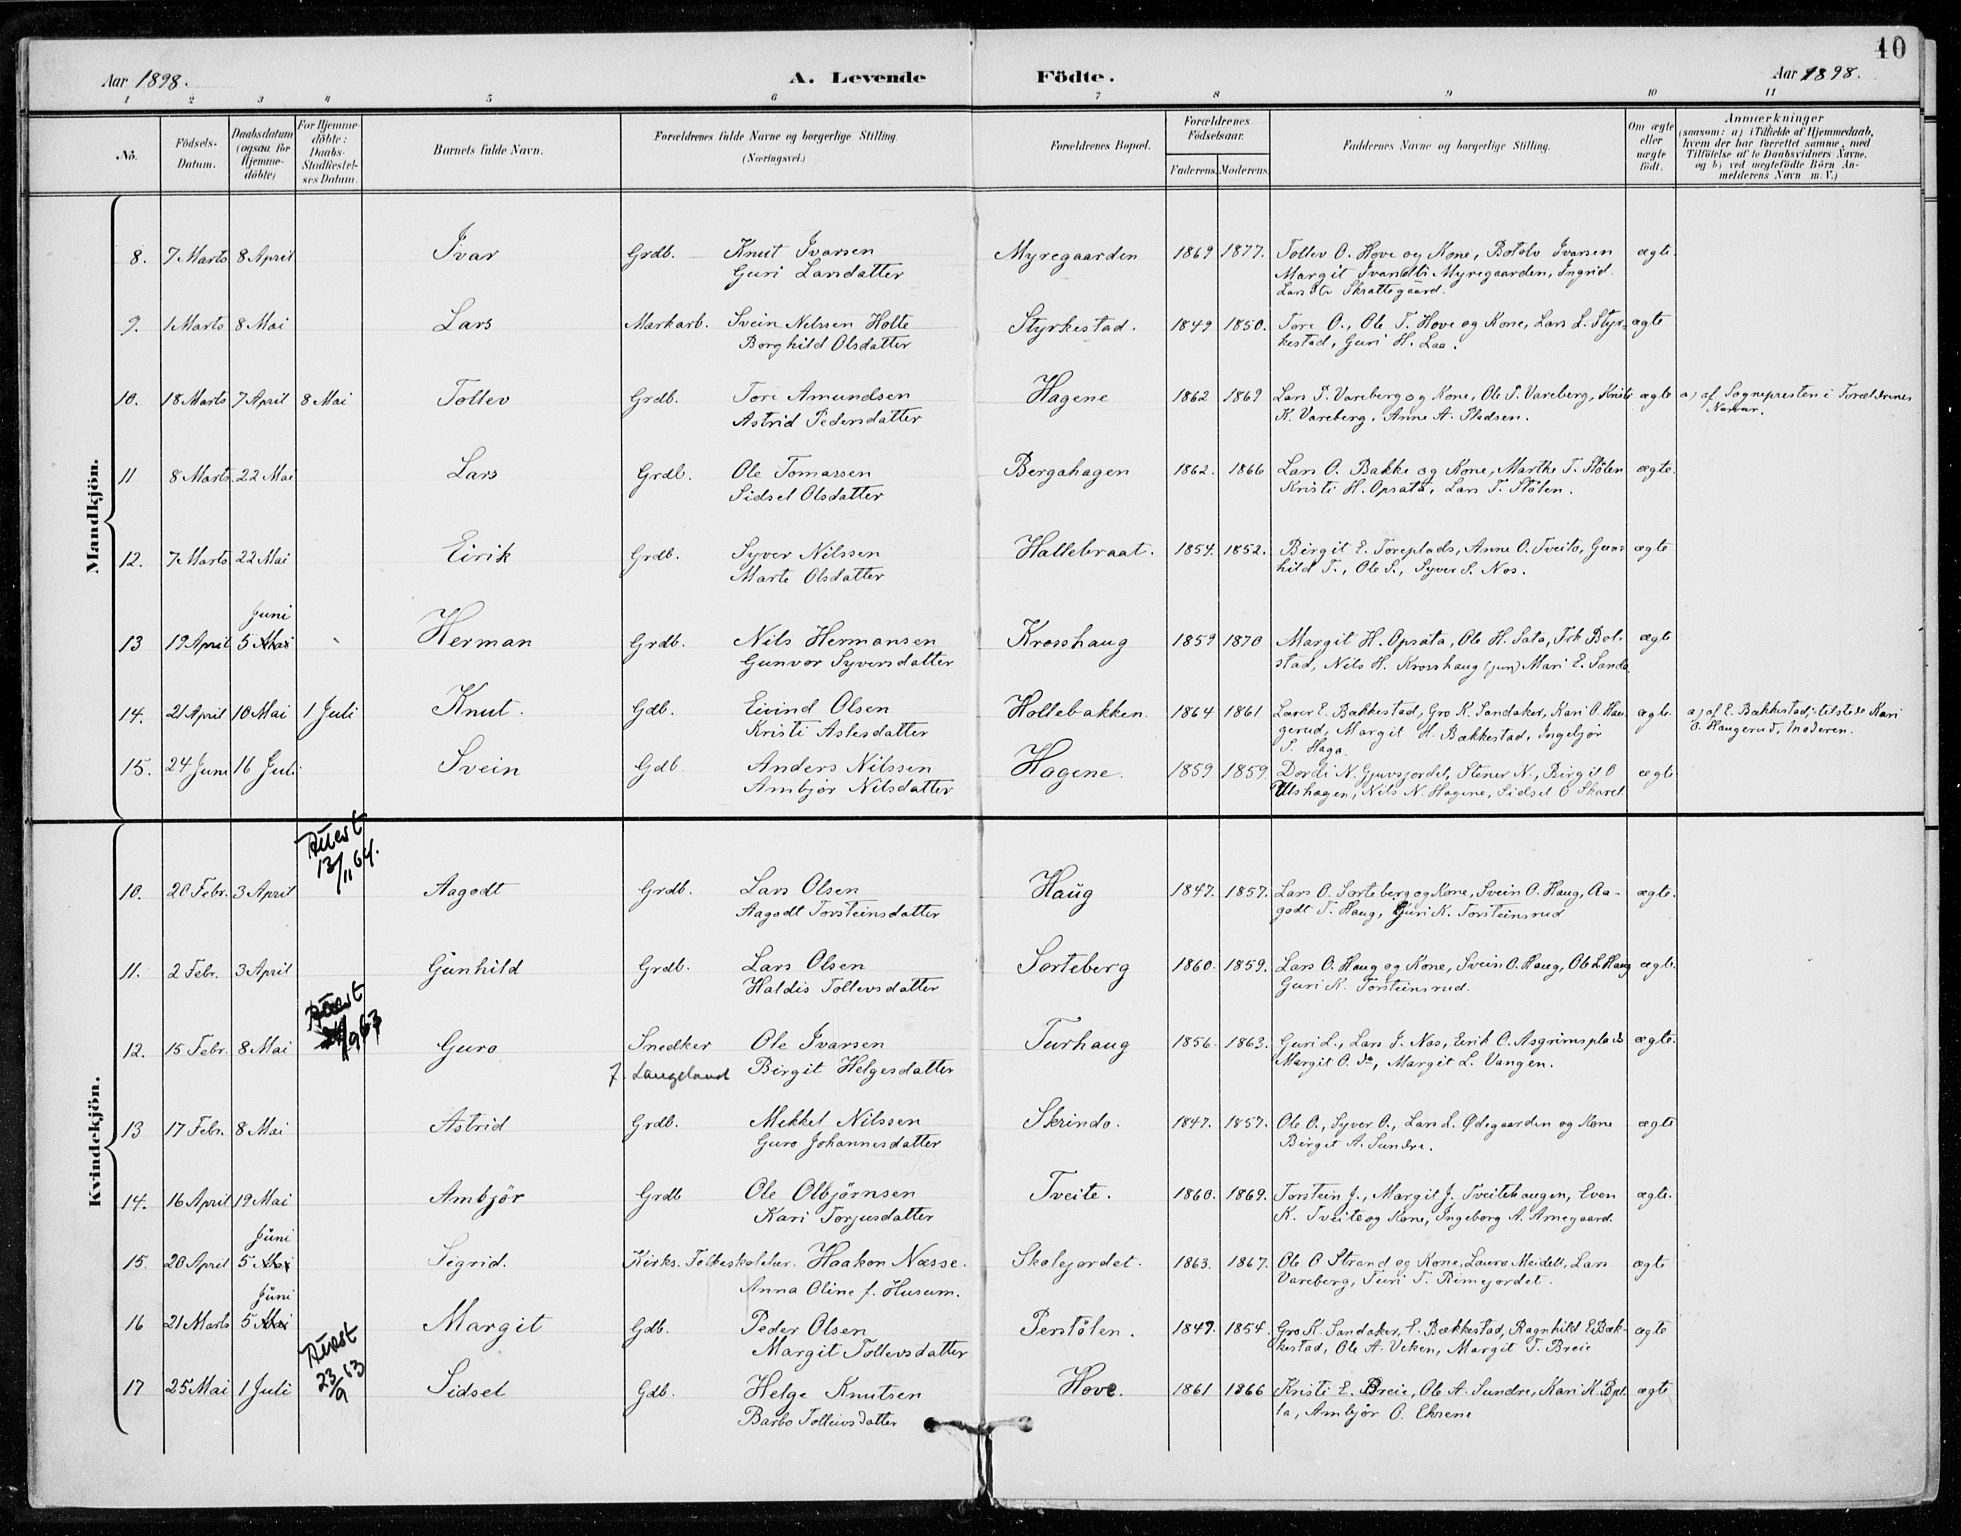 10
Aar 1898. A. Levende Födte. Aar 1898.
1 2 3 4 5 6 7 8 9 10 11
No. Födsels-Datum. Daabsdatum (ogsaa for Hjemme-döbte) For Hjemme-döbte: Daabs-Stadfæstel-ses Datum. Barnets fulde Navn. Forældrenes fulde Navne og borgerlige Stilling. (Næringsvei.) Forældrenes Bopæl. Forældrenes Födselsaar. Faderens. Moderens. Faddernes Navne og borgerlige Stilling. Om ægte eller uægte födt. Anmærkninger (saasom: a) i Tilfælde af Hjemmedaab, hvem der har forrettet samme, med Tilföielse af to Daabsvidners Navne, og b) ved uegtefödte Börn An-melderens Navn m. V.)
Mandkjön.
8. 7 Marts 8 April Ivar Grdb. Knut Ivarsen Myregaarden 1869 1877. Tollev O. Hove og Kone, Botolv Ivarsen ægte.
Guri Larsdatter Margit Ivarsdtr Myregaarden, Ingrid
Lars Dtr Skrattegaard.
9. 1 Marts 8 Mai Lars Markarb. Svein Nilssen Holte Styrkestad. 1849 1850. Tore O., Ole T. Hove og Kone, Lars L. Styr- ægte
Borghild Olsdatter kestad, Guri H. Laa.
10. 18 Marts 7 April 8 Mai Tollev Grdb. Tore Amundsen Hagene 1862 1869 Lars P. Vareberg og Kone, Ole P. Vareberg, Kristi ægte a) af Sognepresten i Forældrenes
Astrid Pedersdatter K. Vareberg, Anne A. Pladsen. Nærvær.
11 8 Marts 22 Mai Lars Grdb. Ole Tomassen Bergahagen 1862. 1866 Lars O. Bakke og Kone, Marthe T. Stölen ægte.
Sidsel Olsdatter Kristi H. Opsata, Lars T. Stölen.
12. 7 Marts 22 Mai Eirik Grdb. Syver Nilssen Hallebraat. 1854. 1852. Birgit E. Toreplads, Anne O. Tveito, Gun- ægte
Marte Olsdatter hild T., Ole S., Syver S. Nos.
Juni
13 19 April 5 Mai Herman Grdb. Nils Hermansen Krosshaug 1859 1870 Margit H. Opsata, Ole H. Sata, Frk Bol- ægte
Gunvor Syversdatter stad, Nils H. Krosshaug (jun) Mari E. Sando
14. 21 April 10 Mai 1 Juli Knut. Gdb. Eivind Olsen Hollebakken. 1864 1861 E. Bækkestad, Gro K. Sandaker, Kari O. Hau- ægte. a) af E. Bækkestad; tilstede Kari
Kristi Aslesdatter gerud, Margit H. Bækkestad, Ingebjör O. Haugerud, Moderen.
T. Haga.
15. 24 Juni 16 Juli Svein Gdb. Anders Nilssen Hagene. 1859 1859. Dordi N. Gjuvsjordet, Stener N., Birgit O ægte
Ambjör Nilsdatter Ulshagen, Nils N. Hagene, Sidsel O Skaret
Kvindekjön.
Attest
13/11 64.
10. 20 Febr. 3 April Aagodt Grdb. Lars Olsen Haug 1847. 1857. Lars O. Sorteberg og Kone, Svein O. Haug, Aa- ægte.
Aagodt Torsteinsdatter godt T. Haug, Guri K. Torsteinsrud
11. 2 Febr. 3 April Gunhild Grdb. Lars Olsen Sorteberg 1860. 1859. Lars O. Haug og Kone, Svein O. Haug, Ole L Haug ægte.
Haldis Tollevsdatter Guri K. Torsteinsrud.
Attest
/9 63
12. 15 Febr. 8 Mai Guro Snedker Ole Ivarsen Turhaug 1856 1863. Guri L., Lars J. Nos, Eirik O. Asgrimsplads ægte.
f. Langeland Birgit Helgesdatter Margit O. Do, Margit L. Vangen.
13 17 Febr. 8 Mai Astrid Grdb. Mekkel Nilssen Skrindo. 1847. 1857. Ole O., Syver O., Lars L. Ødegaarden og Kone ægte
Guro Johannesdatter Birgit A. Sundre.
14. 16 April 19 Mai Ambjör Grdb Ole Olbjørnsen Tveite. 1860. 1869. Torstein J., Margit J. Tveitehaugen, Even ægte.
Kari Torjusdatter K. Tveite og Kone, Ingeborg A. Arnegaard.
Juni
15. 20 April 5 Mai Sigrid. Kirks. Folkeskolelær. Haakon Næsse. Skolejordet. 1863. 1867. Ole O Strand og Kone, Laura Meidell, Lars ægte
Anna Oline f. Husum. Vareberg, Turi T. Rimejordet.
Juni
16 21 Marts 5 Mai Margit Gdb. Peder Olsen Perstölen. 1849. 1854. Gro K. Sandaker, E. Bækkestad, Ragnhild E Bæk- ægte
Margit Tollevsdatter kestad, Ole A. Veken, Margit T. Breie
Attest
23/9 63
17 25 Mai 1 Juli Sidsel Gdb. Helge Knutsen Hove. 1861 1866 Kristi E. Breie, Ole A. Sundre, Kari K. ægte
Barbo Tolleivsdatter Ambjör O. Ekrene